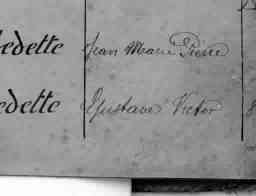 edette Jean Marie Pierre
edette Gustave Victor